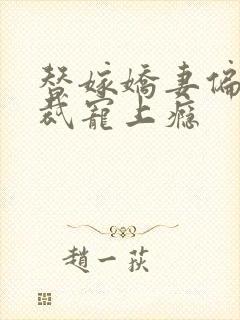 替嫁嬌妻偏
裁寵上癮
趙一荻